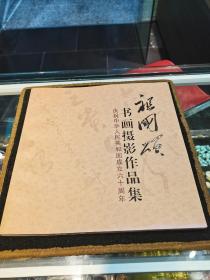 祖国颂
书画摄影作品集
庆祝中华人民共和国成立六十周年